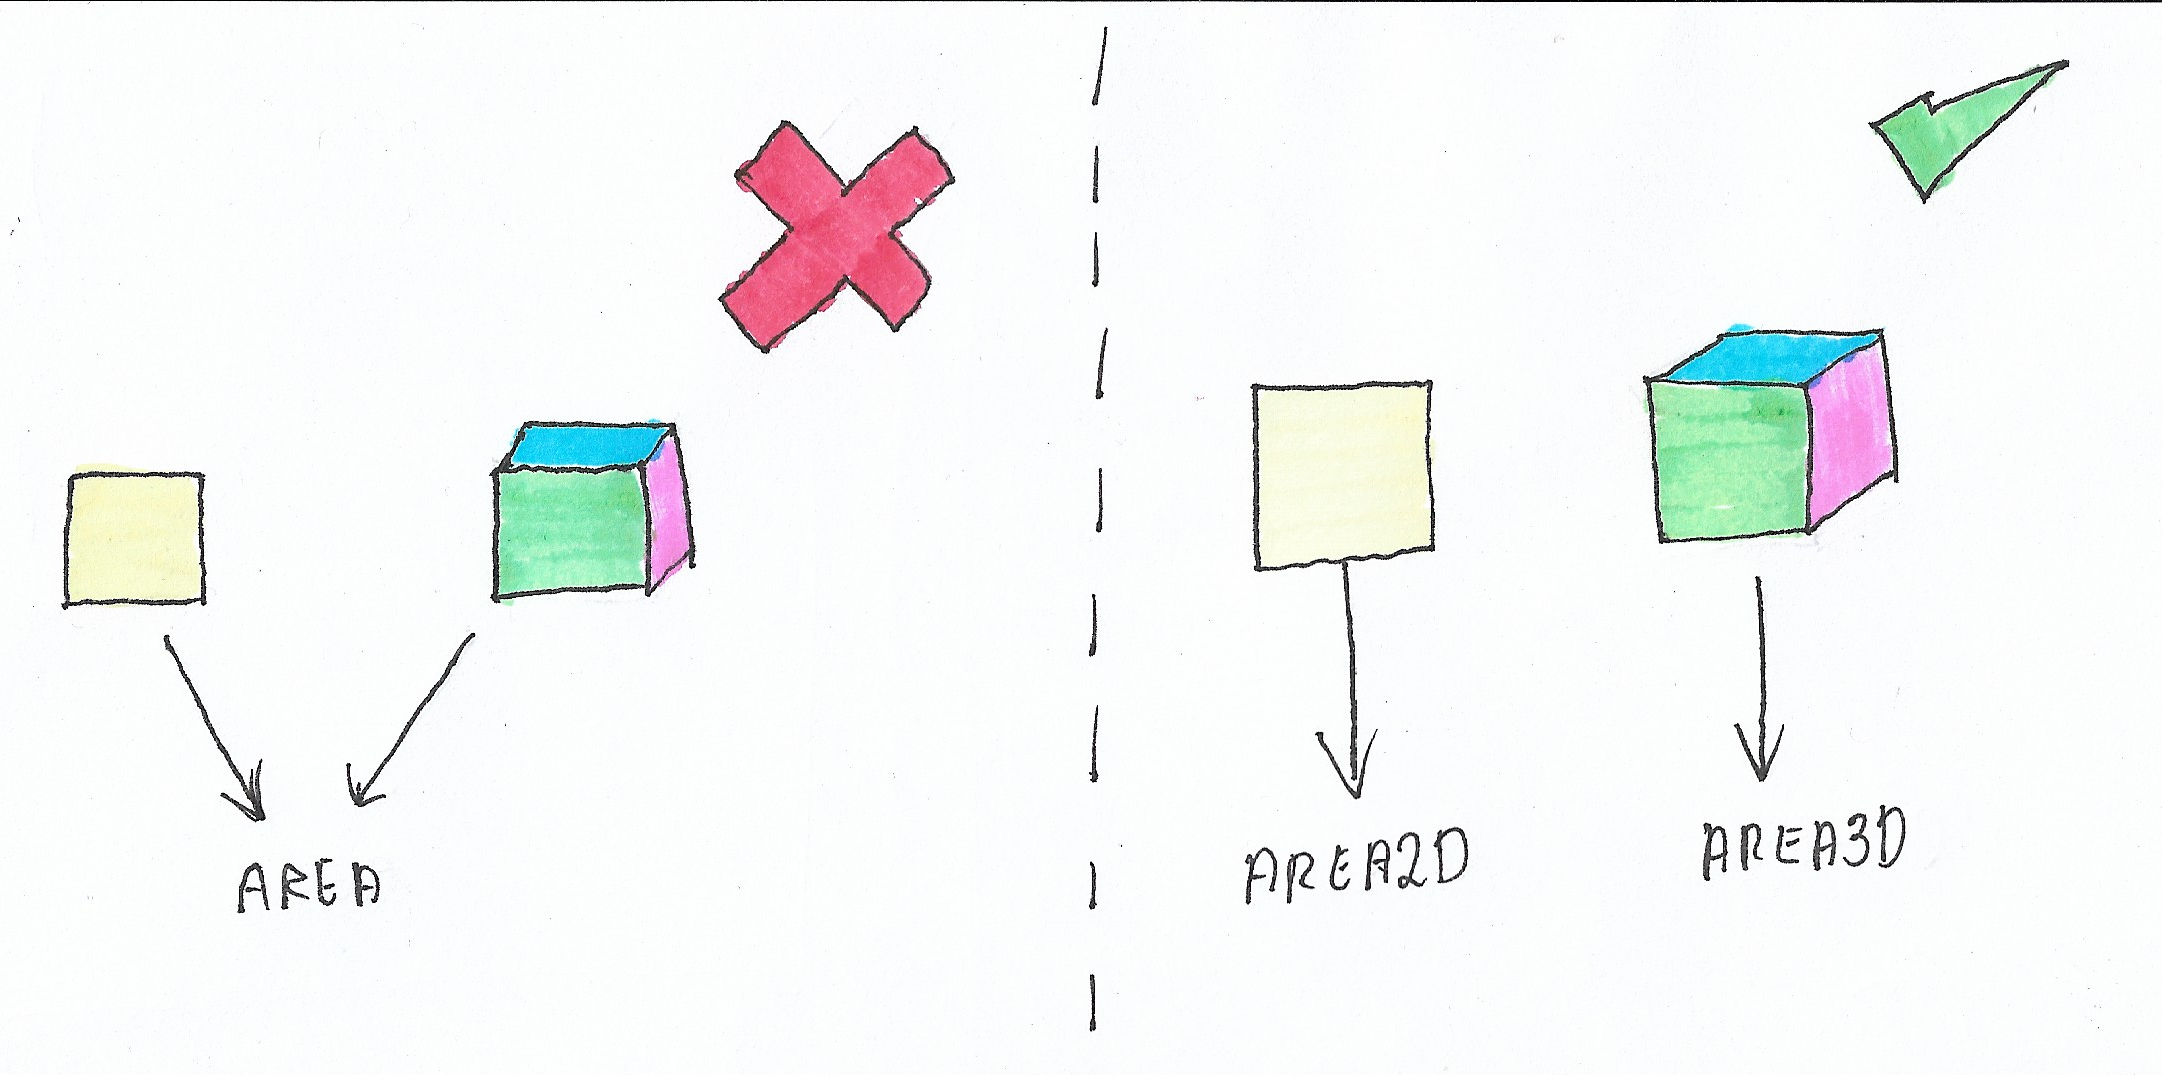 AREA
AREA2D
AREA3D